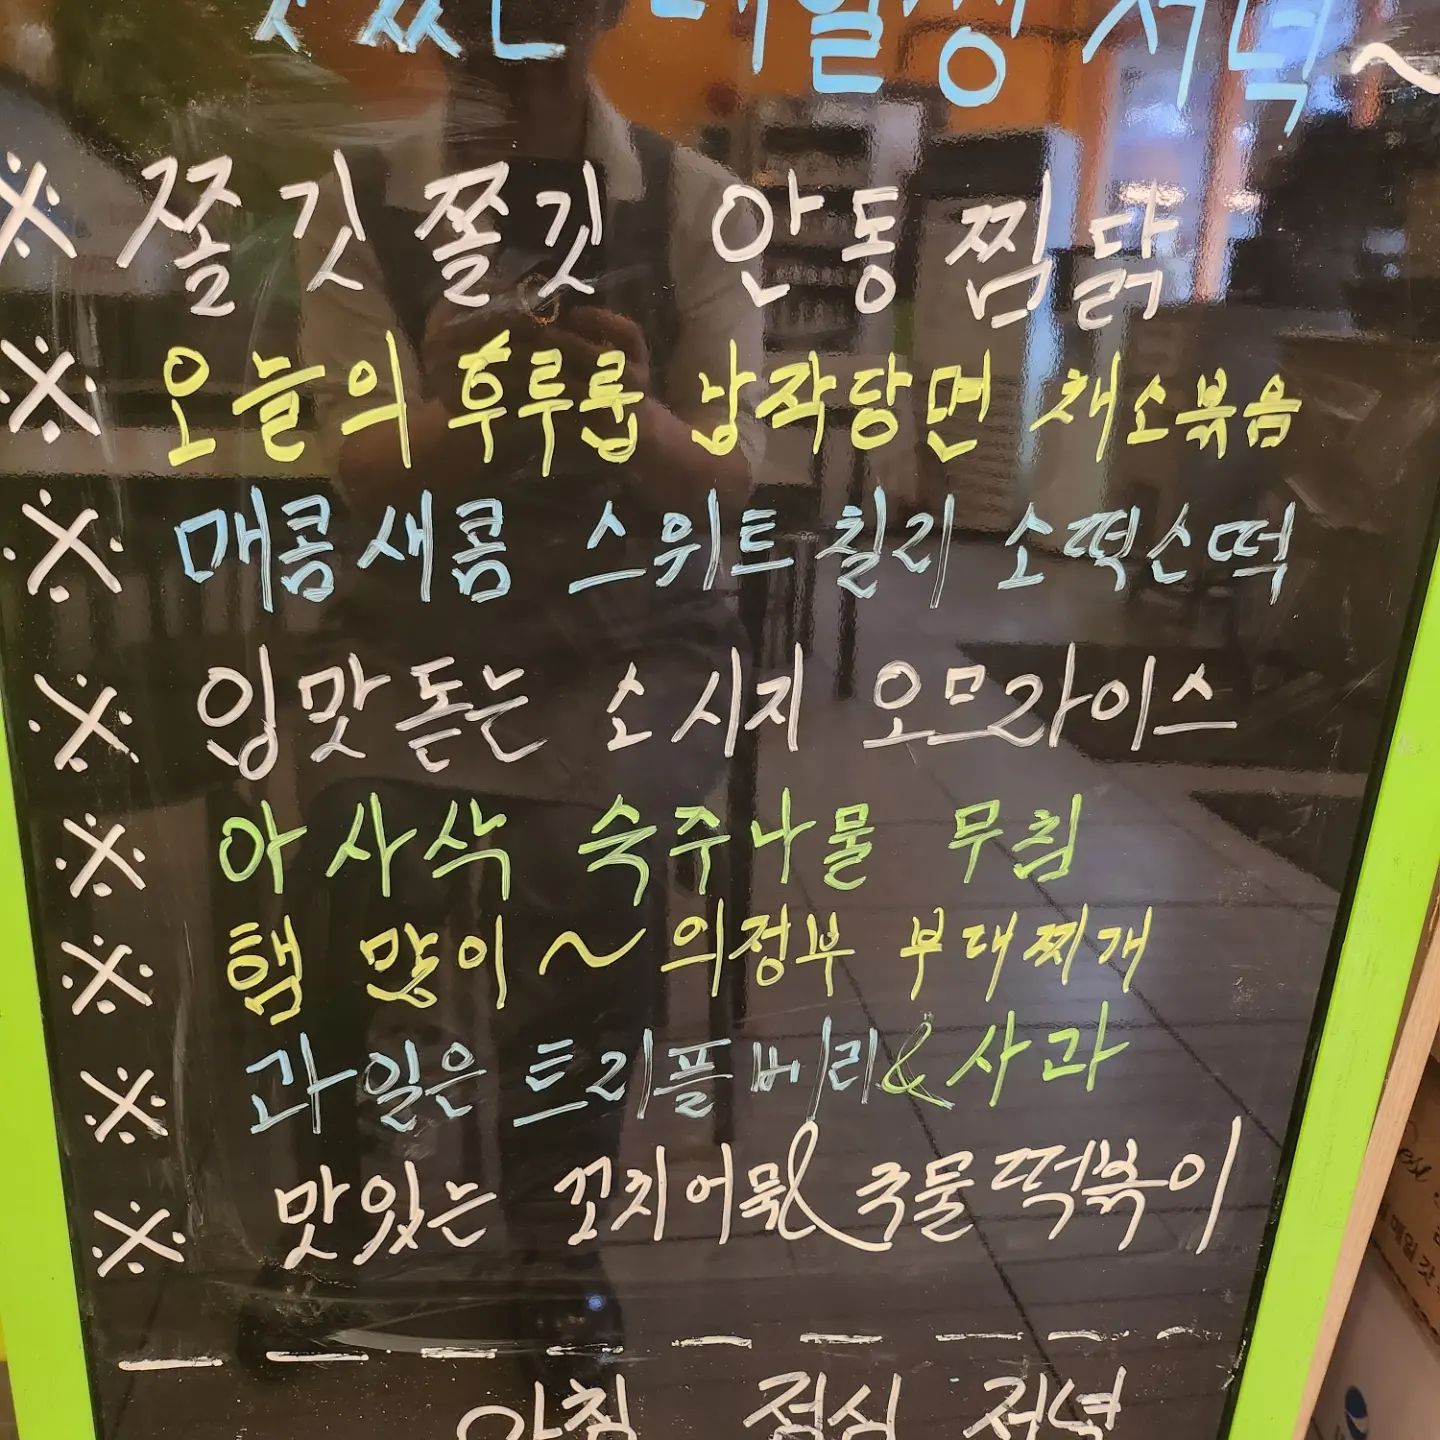 맛있는 매일생 저녁~
※ 쫄깃쫄깃 안동찜닭
※ 오늘의 후루룹 납작당면 채소볶음
※ 매콤새콤 스위트칠리 소떡소떡
※ 입맛돋는 소시지 오므라이스
※ 아사삭 숙주나물 무침
※ 햄 많이~ 의정부 부대찌개
※ 과일은 트리플베리&사과
※ 맛있는 꼬치어묵&국물떡볶이
아침 점심 저녁